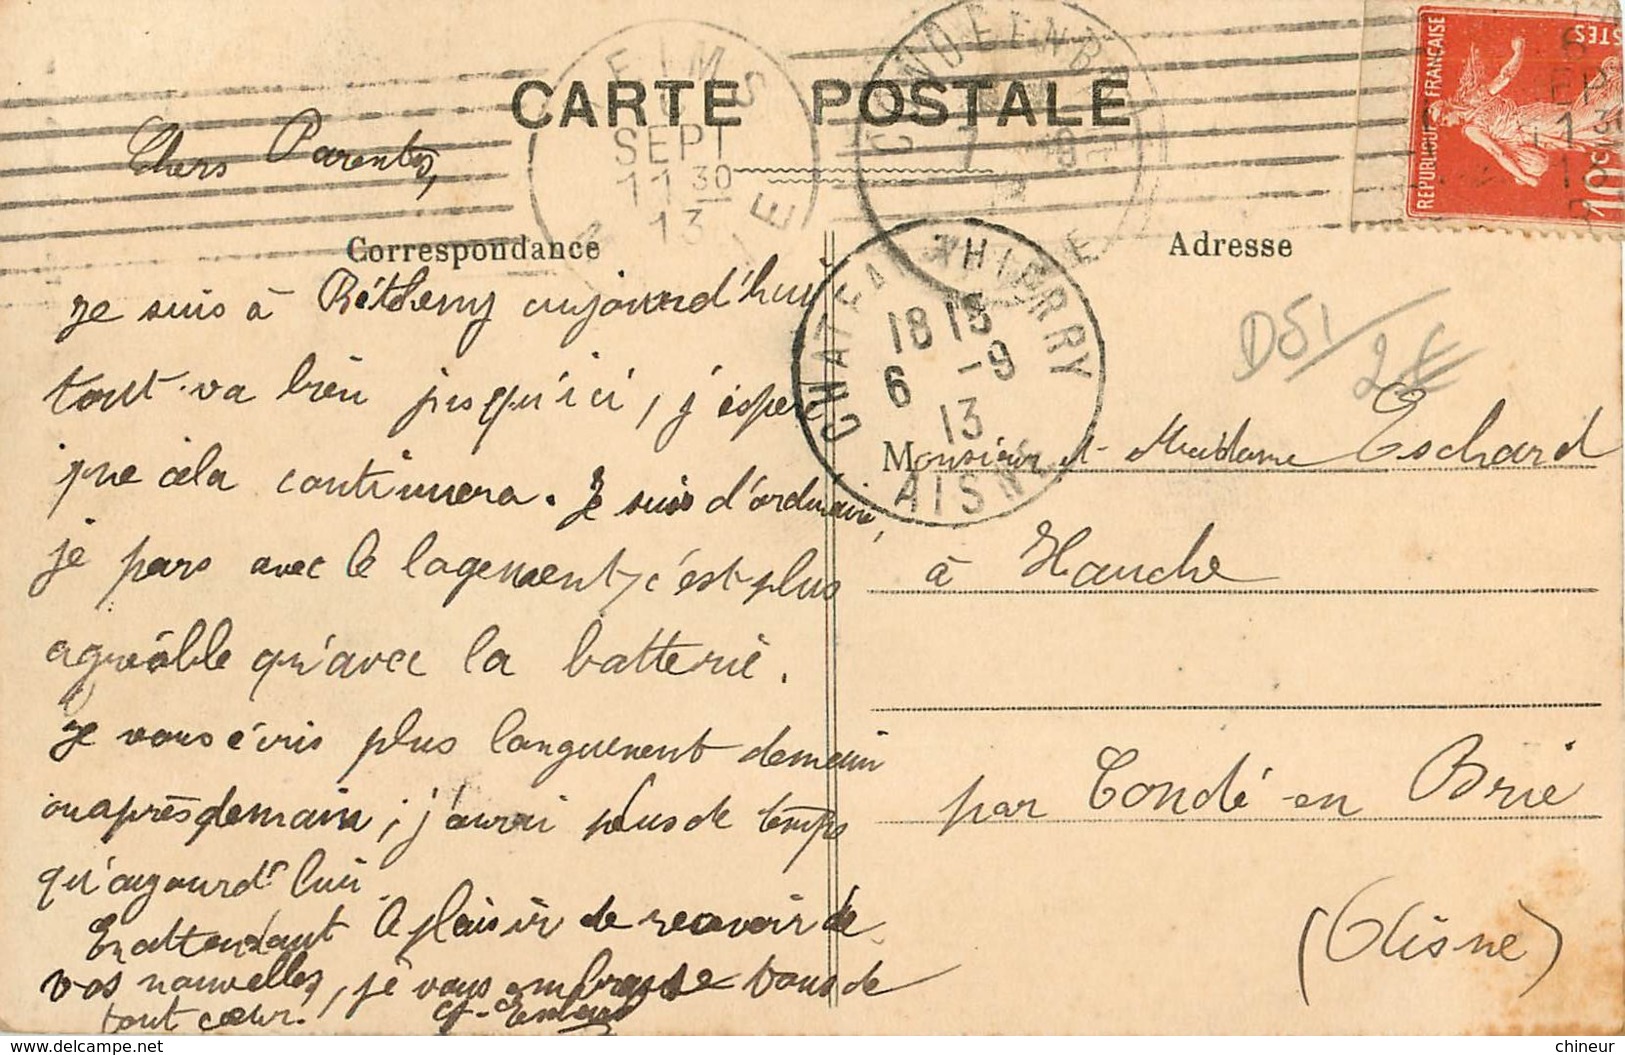 CARTE POSTALE
REIMS
6
SEPT
11 30
13
MARNE
CONDE EN BRIE
7 9
13
AISNE
CHATEAU THIERRY
18 15
6 -9
13
AISNE
REPUBLIQUE FRANÇAISE
POSTES
10c
Chers Parents,
Correspondance
Je suis à Bétheny aujourd'hui
tout va bien jusqu'ici, j'espère
que cela continuera. Je suis d'ordinaire,
je pars avec le logement, c'est plus
agréable qu'avec la batterie.
Je vous écris plus longuement demain
ou après demain; j'aurai plus de temps
qu'aujourd'hui
En attendant le plaisir de recevoir de
vos nouvelles, je vous embrasse tous de
tout cœur.
Adresse
D51/2€
Monsieur et Madame Eschard
à Hauche
par Condé-en Brie
(Aisne)
chineur